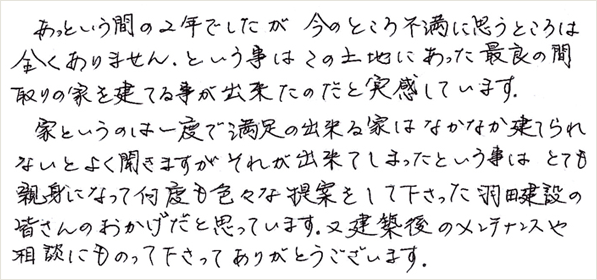 あっという間の2年でしたが 今のところ不満に思うところは
全くありません.という事はこの土地にあった最良の間
取りの家を建てる事が出来たのだと実感しています.
家というのは一度で満足の出来る家はなかなか建てられ
ないとよく聞きますがそれが出来てしまったという事は とても
親身になって何度も色々な提案をして下さった羽田建設の
皆さんのおかげだと思っています.又建築後のメンテナンスや
相談にものって下さってありがとうございます.